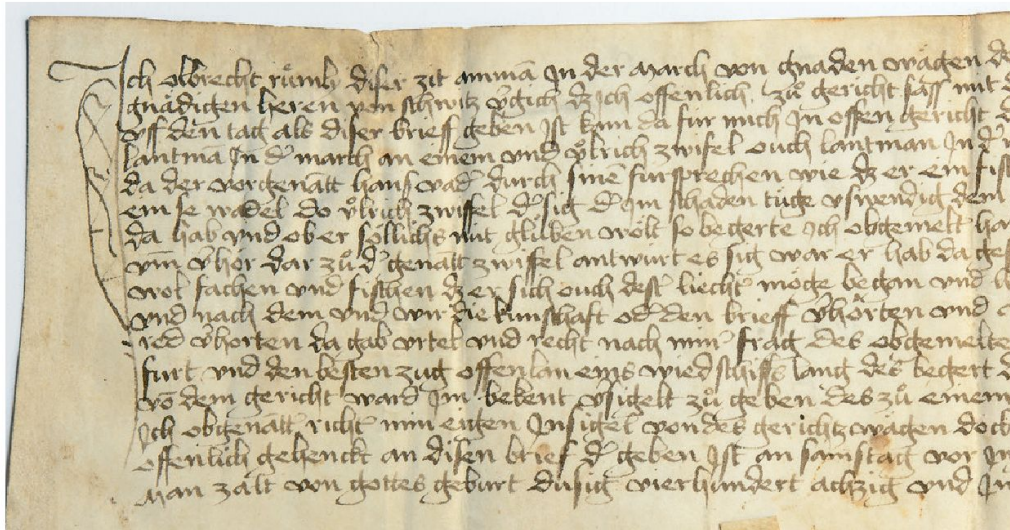 Ich olbrecht rům̄ly diser zit amman̄ In der March von gnaden wägen
gnädigen heren von schwitz v̉gich dz ich offenlich zů gericht sass mit
vff den tag als diser brieff geben Ist kam da für mich In offen gericht
lantman̄ In d̉ march an einem vnd ůlrich zwifel ouch lantman In
da der vorgenant̄ hans wad̉ durch sinē fürsprechen wie dz er ein
ein se wadel do ůlrich zwiffel sig Im schaden tüge vswendig dem
da hab vnd ob er söllichs nüt glüben wölt so begerte Ich obgemelt̉
v̉hör dar zů d̉ genāt zwiffel antwürt es sig war er hab da
wol fachen vnd fischen dz er sich ouch dest̉ liecht̉ möge began vnd
vnd nach dem vnd wir die kuntschaft od̉ den brieff v̉hörten vnd
red v̉hörten da gab vrtel vnd recht nach min̉ frag des obgemelte
furt vnd den besten zug offen lan eins wied̉schiffs lang des begert
vō dem gericht ward Im bekent v̉sigelt zů geben des zů einem
Ich obgenāt̄ richt̉ min eigen Insigel von des gerichtz wägen doch
offenlich gehenckt an disen brief d̉ geben Ist an samstag vor
man zalt von gottes geburt dusig vierhundert achzig vnd